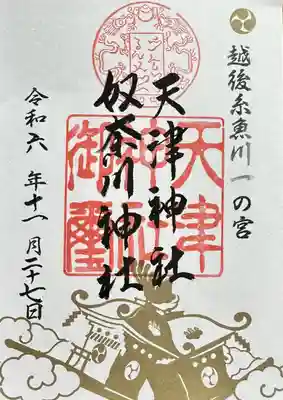 越後糸魚川一の宮
天津神社
奴奈川神社
天津神社御璽
令和六年十一月二十七日